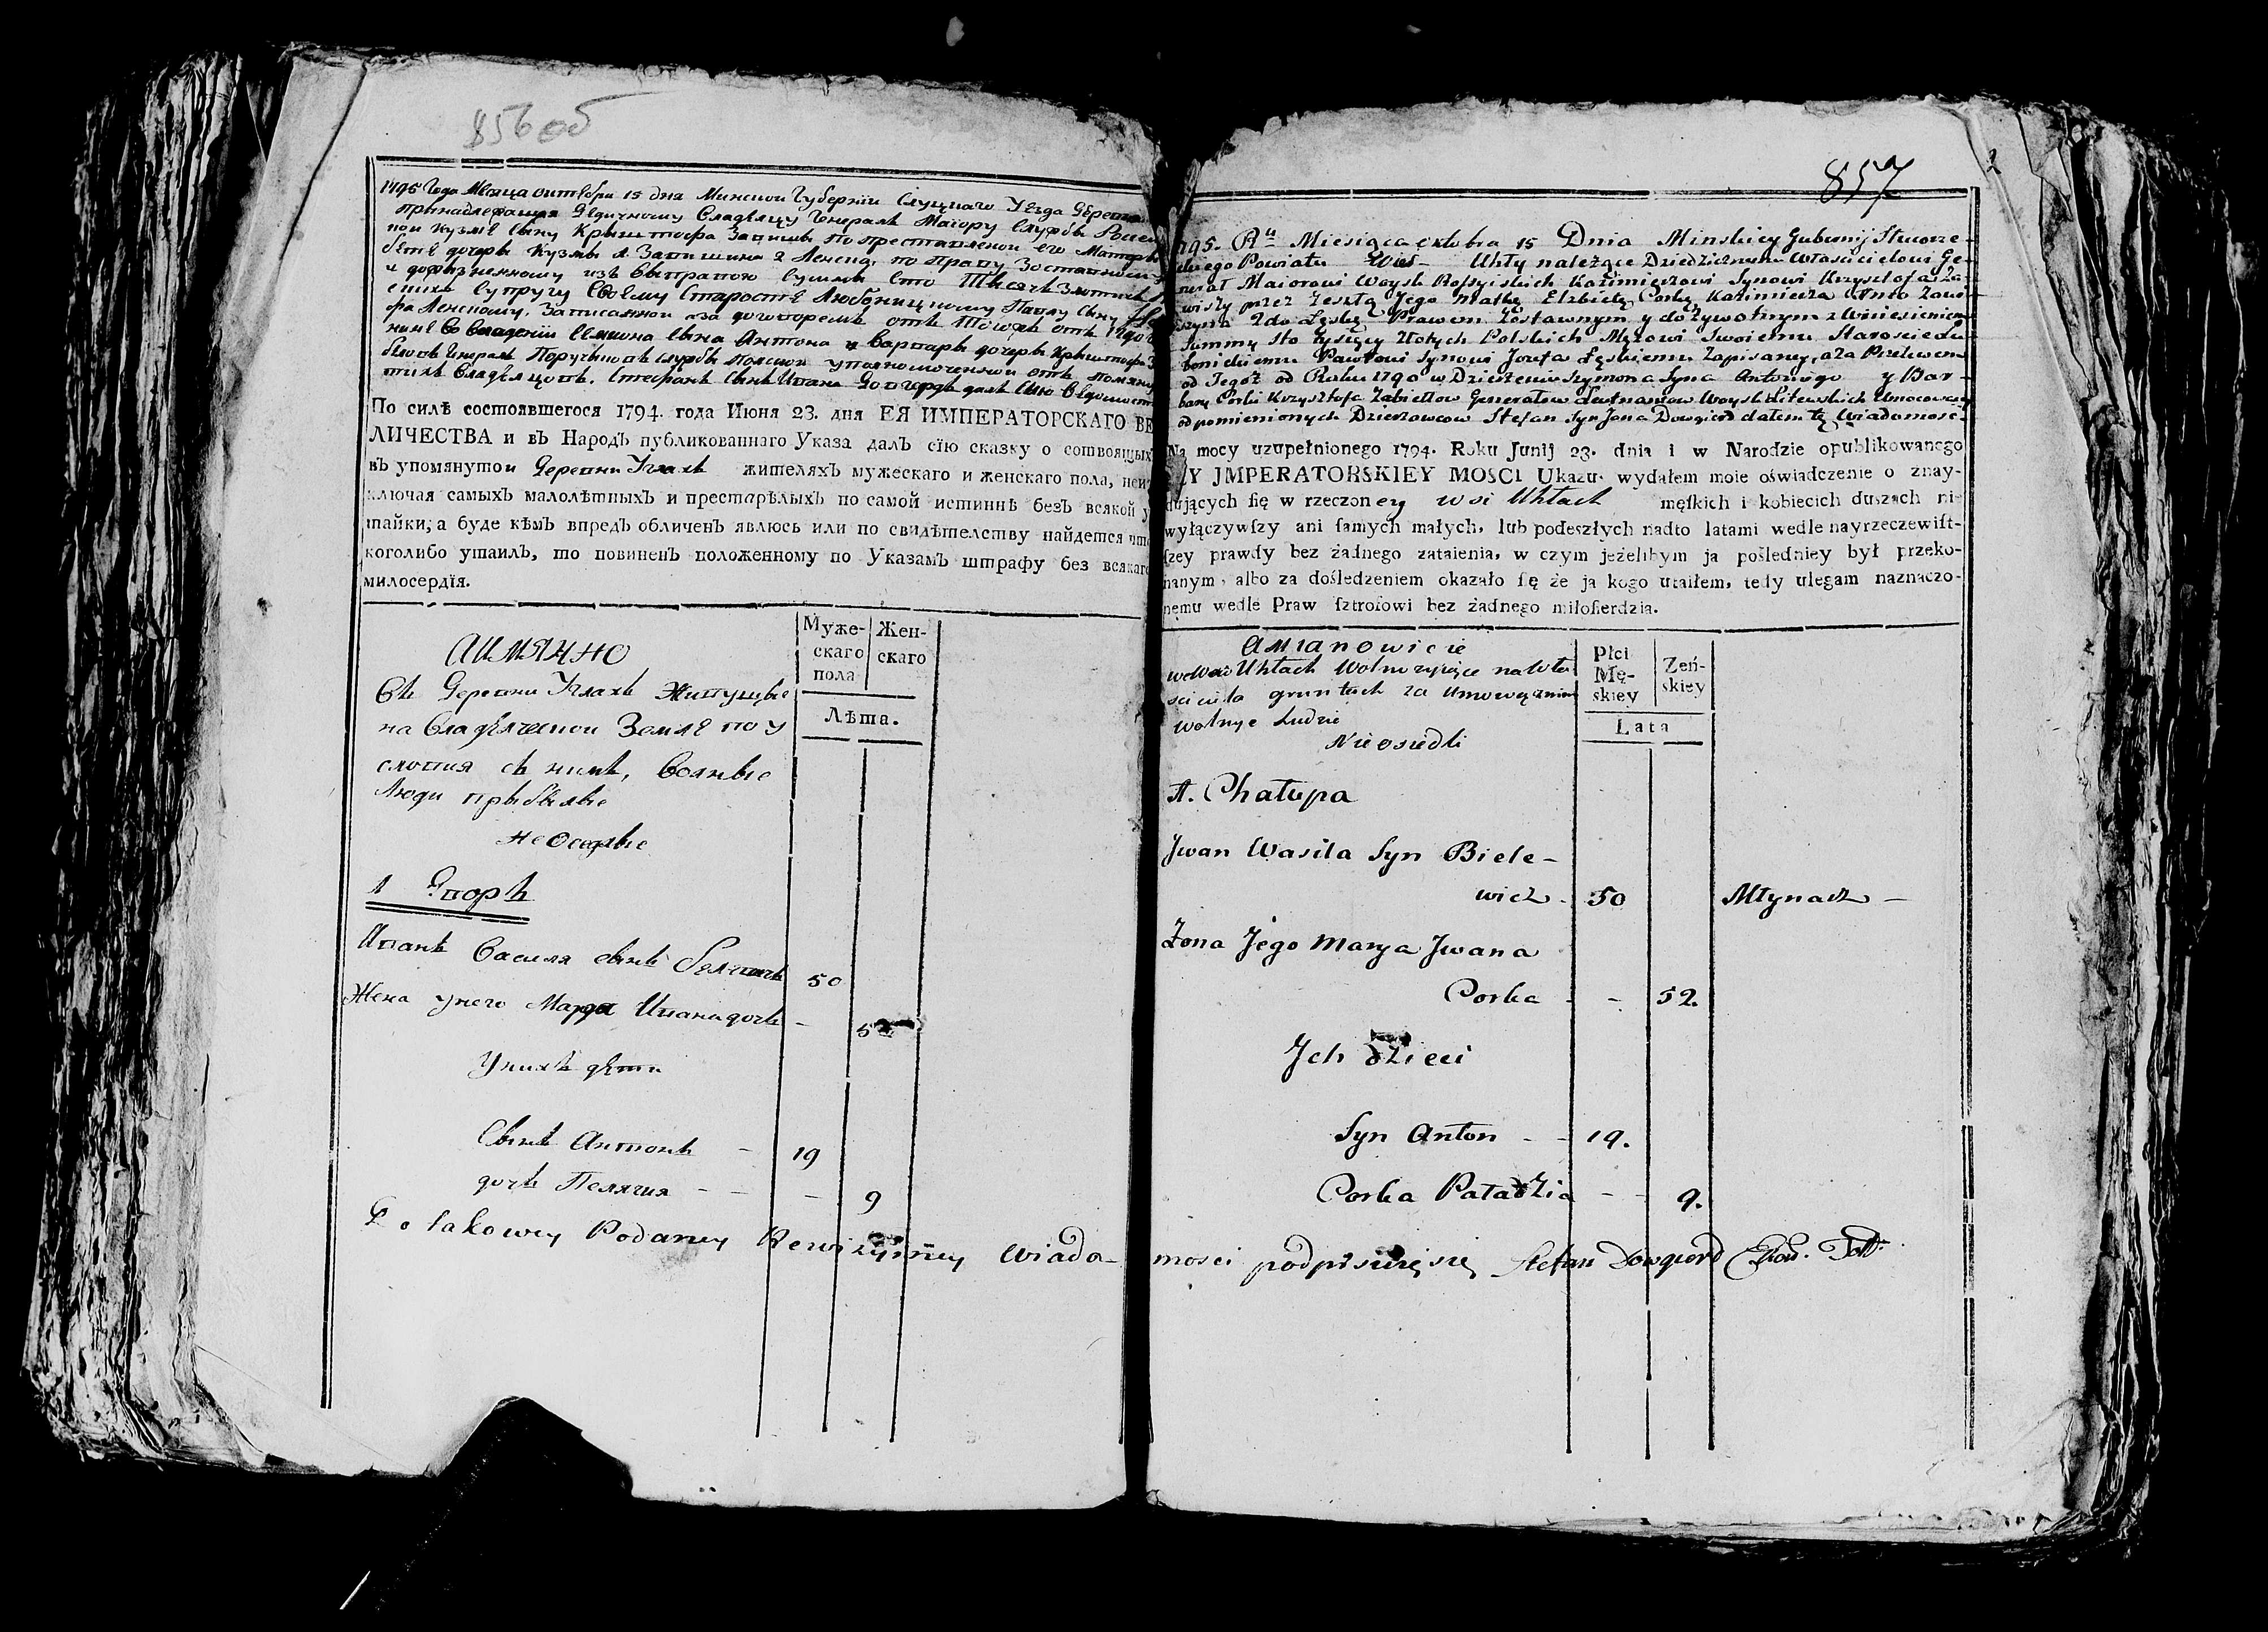 856 об
1795 Года Месяца октебри 15 дня Минской Губернїи Слуцкаго Уезда Дерев
принадлежащая Дедичному Владелцу Генералъ Маіору Службы
сыну Крыштофа Завишы по преставленой его Матери
дочеры Кузмы 1 Завишина 2 Ленска, по праву Зоставному
и доживненному изъ вытратою сумы Сто Тысячъ Злотых
супругу Своему Старосте Любоницкому Павлу сыну
фа Ленскому, Записанной а за договоремъ отъ Тогожъ отъ 1790
ниме во владении Семиона сына Антона и Варвары дочеры Крыштофа
Генералъ Поручиковъ службы полской уполномоченной отъ помяну
тыхъ Владелцовъ. Стефанъ сынъ Ивана Довгердъ далъ Сию Ведомость
По силѣ состоявшегося 1794. года Июня 23. дня ЕЯ ИМПЕРАТОРСКАГО ВЕ
ЛИЧЕСТВА и въ Народъ публикованнаго Указа далъ сїю сказку о сотвоящых
въ упомянутои Деревни Ухлахъ жителяхъ мужескаго и женскаго пола, неи
ключая самыхъ малолѣтныхъ и престарѣлыхъ по самой истиннѣ безъ всякой у
тайки; а буде кѣмъ впредъ обличенъ явлюсь или по свидѣтелству найдется что
коголибо утаилъ, то повиненъ положенному по Указамъ штрафу без всякаго
милосердїя.
АИМЯННО
Въ Деревни Ухлахъ Живущые
на Владелческой Земле по у
словия съ нимъ, Волные
Люди прыбылые
неОседлые
Муже-
скаго
пола
Жен-
скаго
Лѣта.
1 Дворъ
Иванъ Василя сынъ Белевичъ 50
Жена унего Маря Ивана дочь -
У нихъ дети
Сынъ Антонъ - 19
дочъ Пелягия - - - 9
Do takowey Podaney Rewizyiney Wiado-
857
1795. Ru Miesiąca oktobra 15 Dnia Minskiey Gubernij Słucze-
ckiego Powiatu Wieś Uhły należące Dziedzicznemu Własicielowi Ge-
nerał Maiorowi Woysk Rossyiskich Kazimierzowi Synowi Krzysztofa Za-
wiszy przez Zeszłą Jego Matkę Elzbietę Corkę Kazimierza 1mo Zawi-
szyna 2do Łęską Prawem Zostawnym y dożywotnym z Wniesieniem
Summy sto tysięcy Złotych Polskich Mężowi Swoiemu Starosciedu
bonickiemu Pawłowi Synowi Jozefa Łęskiemu Zapisany, a za Przelewem
od Tegoż od Roku 1790 w Dzierżeniu Szymona Syna Antoniego y Bar-
bary Corki Krzysztofa Zabiełłow Generałow Leutnantow Woysk Litewskich Umocowany
od pomienionych Dzierzawcow Stefan Syn Jana Dowgierd dałem tę Wiadomosc.
Na mocy uzupełnionego 1794. Roku Junij 23. dnia i w Narodzie opublikowanego
EY JMPERATORSKIEY MOSCI Ukazu wydałem moie oświadczenie o znay-
duiących się w rzeczoney wsi Uhłach męskich i kobiecich duszach nie
wyłączywſzy ani ſamych małych, lub podeszłych nadto latami wedle nayrzeczewiſt-
ſzey prawdy bez żadnego zataienia, w czym jeżelibym ja poſledniey był przeko-
nanym, albo za dośledzeniem okazało ſię że ja kogo utaiłem, tedy ulegam naznaczo-
nemu wedle Praw ſztrofowi bez żadnego miłoſierdzia.
Amianowicie
we Wsi Uhłach Wolno żyiące na Wła
sciciela gruntach za Umowę z nim
wolnye Ludzie
Nieosiedli
Płci
Mę-
skiey
Zeń-
skiey
Lata
A. Chałupa
Jwan Wasila Syn Biele-
wicz. 50 Młynarz -
Żona Jego Marya Jwana
Corka - - 52.
Jch dzieci
Syn Anton - - 19.
Corka Paładzia - - 9.
mosci podpisuię się Stefan Dowgierd